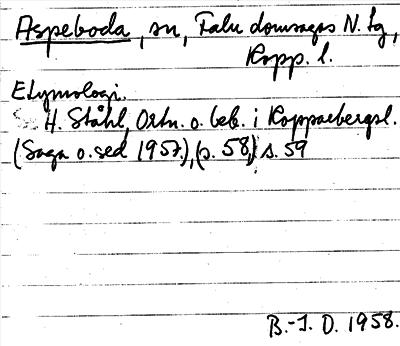 Aspeboda, sn, Falu domsagas N. tg,
Kopp. l.
Etymologi.
H. Ståhl, Ortn. o. beb. i Kopparbergsl.
(Saga o. sed 1957.), (s. 58,) s. 59
B.-I. D. 1958.